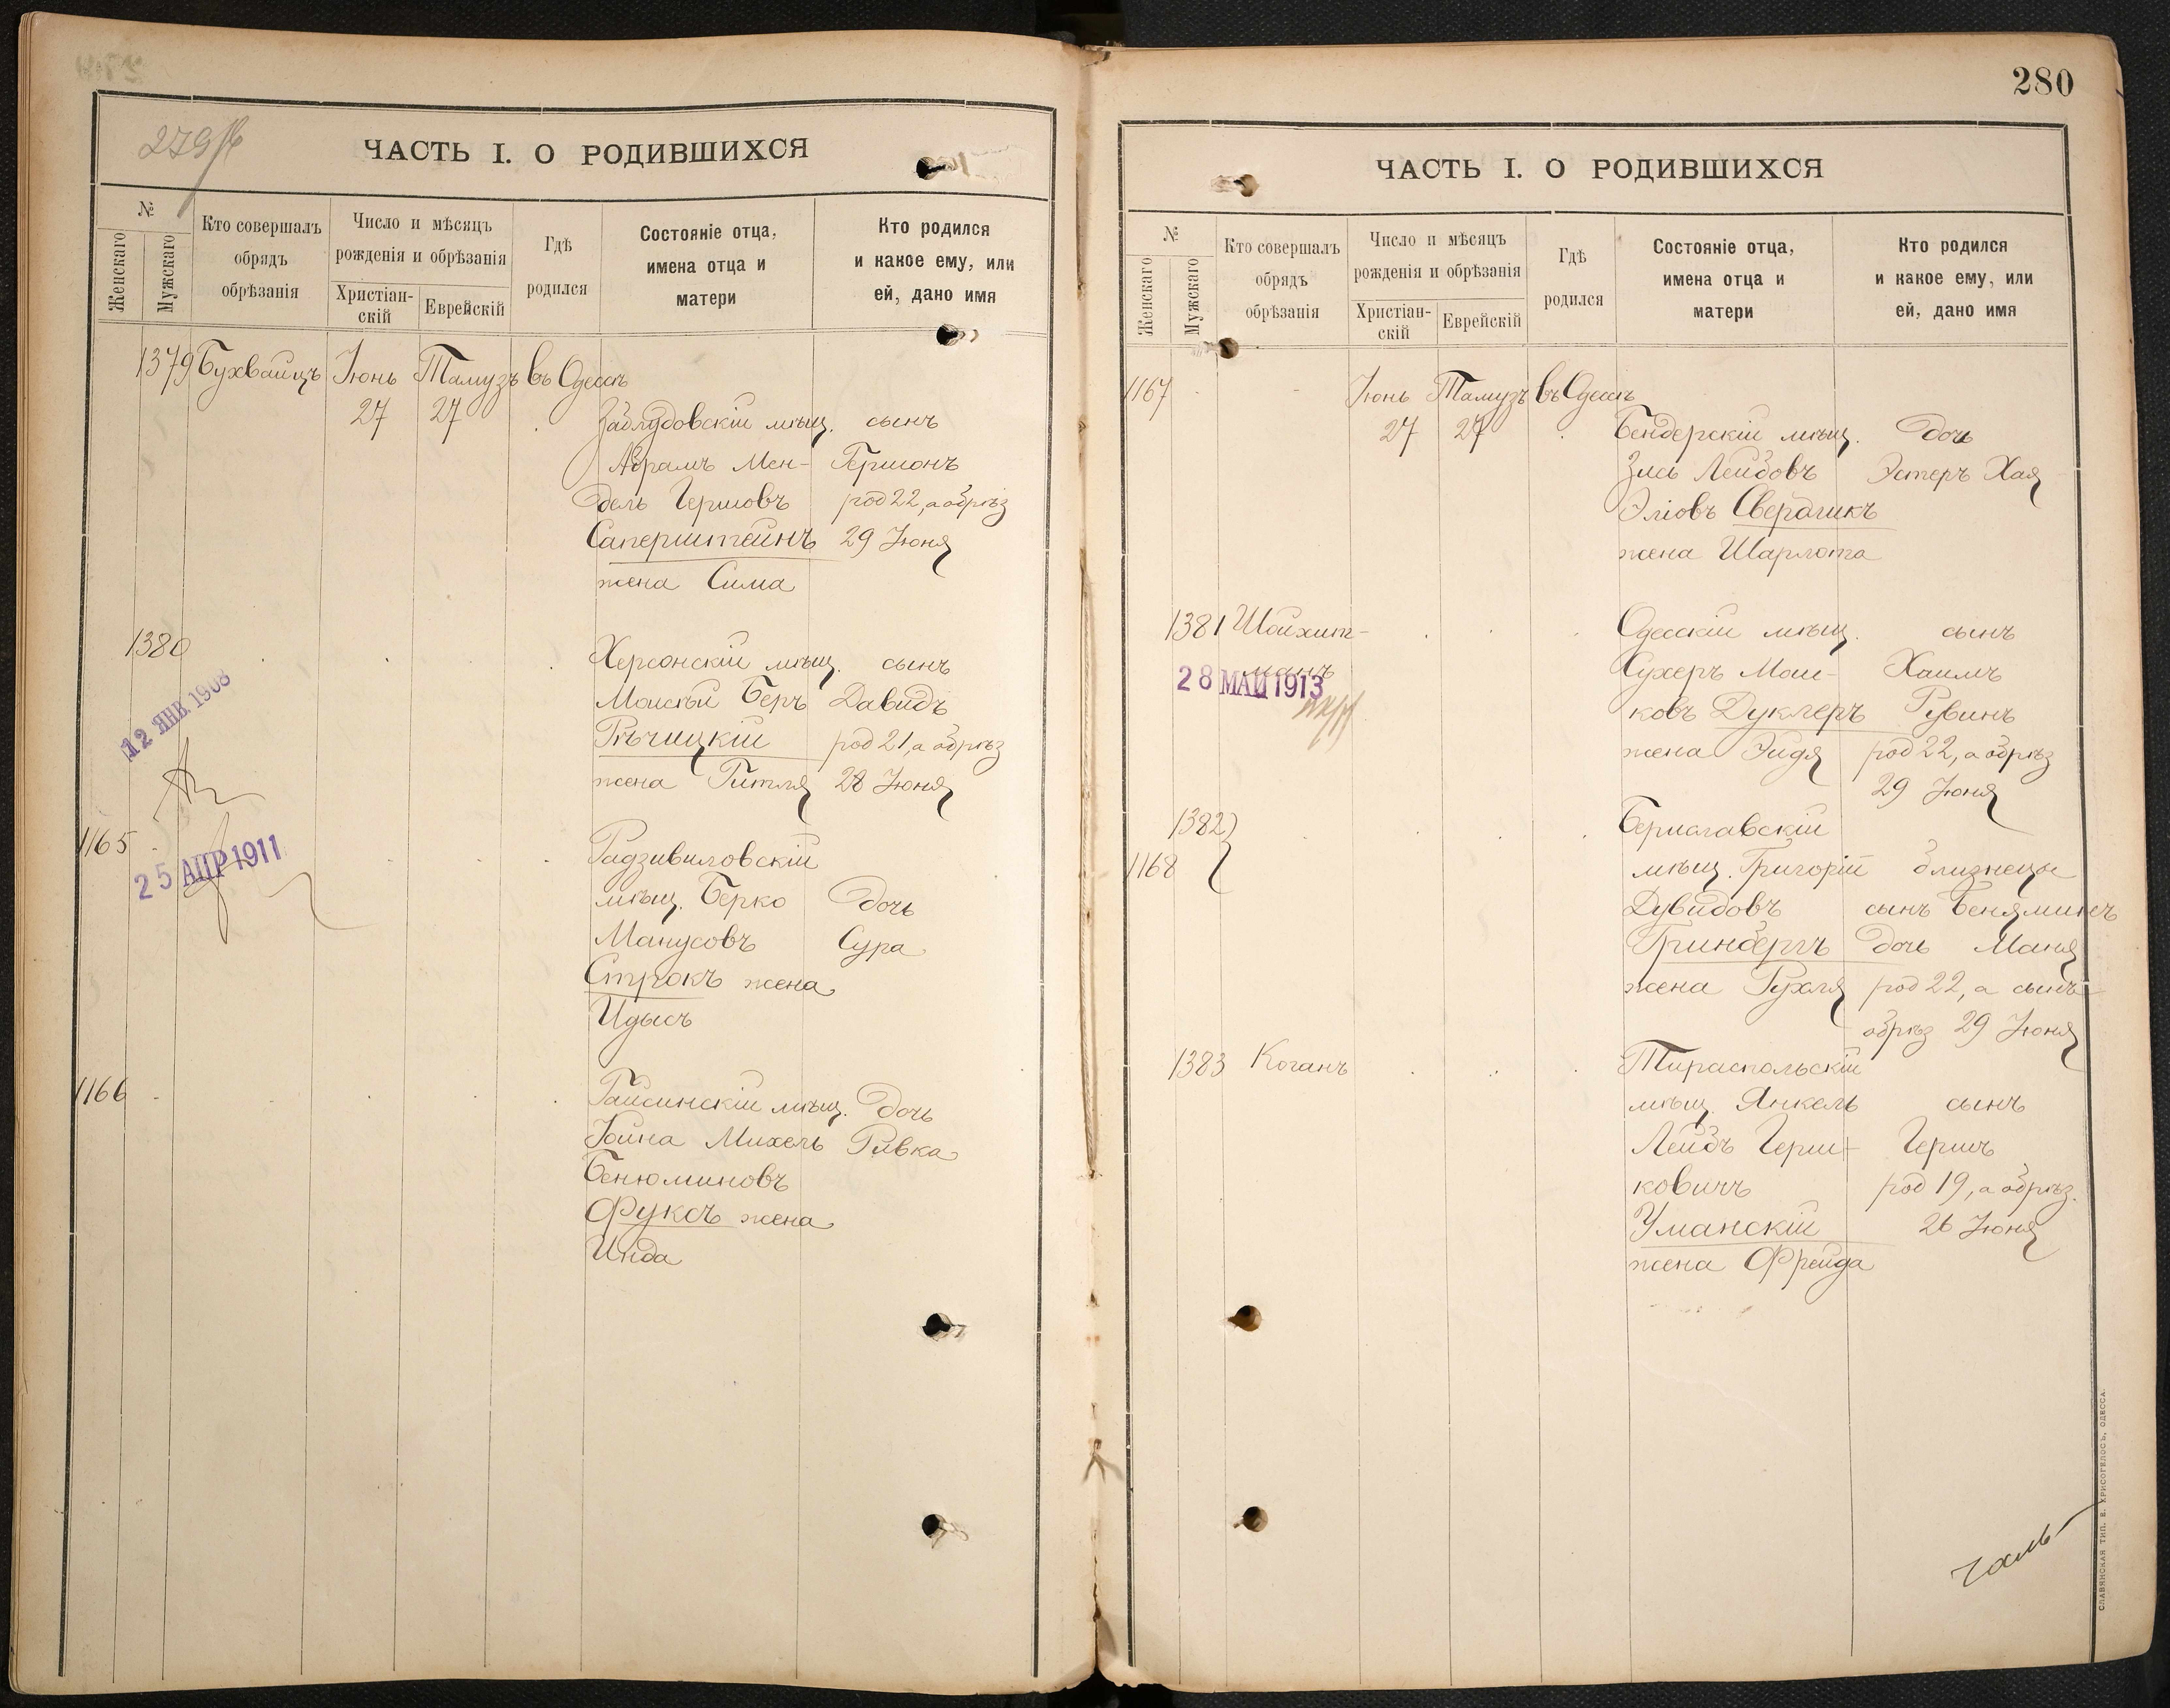 279
ЧАСТЬ I. О РОДИВШИХСЯ
№
Женскаго
Мужскаго
Кто совершалъ
обрядъ
обрѣзанія
Число и мѣсяцъ
рожденія и обрѣзанія
Христіан-
скій
Еврейскій
Гдѣ
родился
Состояніе отца,
имена отца и
матери
Кто родился
и какое ему, или
ей, дано имя
1379 Бухвайцъ Іюнь Тамузъ въ Одессѣ
27 27
Заблудовскій мѣщ. сынъ
Абрамъ Мен- Гершонъ
дель Гершовъ род 22, а обрѣз
Саперштейнъ 29 Іюня
жена Сима
1380
Херсонскій мѣщ. сынъ
12 ЯНВ. 1908
Моисѣй Беръ Давидъ
Рѣчицкій род 21, а обрѣз
жена Гитля 28 Іюня
1165
Радзивиловскій
25 АПР 1911
мѣщ. Берко дочь
Манусовъ Сура
Строкъ жена
Идысъ
1166
Гайсинскій мѣщ. дочь
Іойна Михель Ривка
Бенюминовъ
Фуксъ жена
Инда
280
ЧАСТЬ I. О РОДИВШИХСЯ
№
Женскаго
Мужскаго
Кто совершалъ
обрядъ
обрѣзанія
Число и мѣсяцъ
рожденія и обрѣзанія
Христіан-
скій
Еврейскій
Гдѣ
родился
Состояніе отца,
имена отца и
матери
Кто родился
и какое ему, или
ей, дано имя
1167 Іюнь Тамузъ въ Одессѣ
27 27
Бендерскій мѣщ. дочь
Зись Лейбовъ Эстеръ Хая
Эліовъ Свердликъ
жена Шарлота
1381 Шойхит-
манъ
28 МАЙ 1913
Одесскій мѣщ. сынъ
Сухеръ Мош- Хаимъ
ковъ Дуклеръ Рувинъ
жена Эйдя род 22, а обрѣз
29 Іюня
1382
1168
Бериславскій
мѣщ. Григорій близнецы
Дувидовъ сынъ Беняминъ
Гринбергъ дочь Маня
жена Рухля род 22, а сынъ
обрѣз 29 Іюня
1383 Коганъ
Тираспольскій
мѣщ. Янкель сынъ
Лейбъ Герш- Гершъ
ковичъ род 19, а обрѣз.
Уманскій 26 Іюня
жена Фрейда
СЛАВЯНСКАЯ ТИП. Е. ХРИСОГЕЛОСЪ, ОДЕССА.